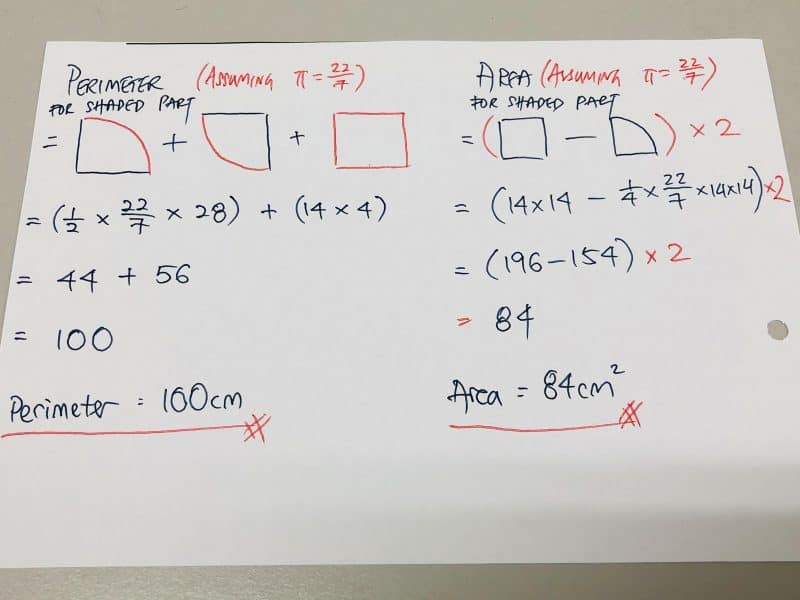 PERIMETER (ASSUMING π = 22/7)
FOR SHADED PART
= + +
= (1/2 × 22/7 × 28) + (14 × 4)
= 44 + 56
= 100
Perimeter = 100cm
AREA (ASSUMING π = 22/7)
FOR SHADED PART
= ( − ) × 2
= (14×14 − 1/4 × 22/7 × 14×14) ×2
= (196−154) × 2
= 84
Area = 84cm²